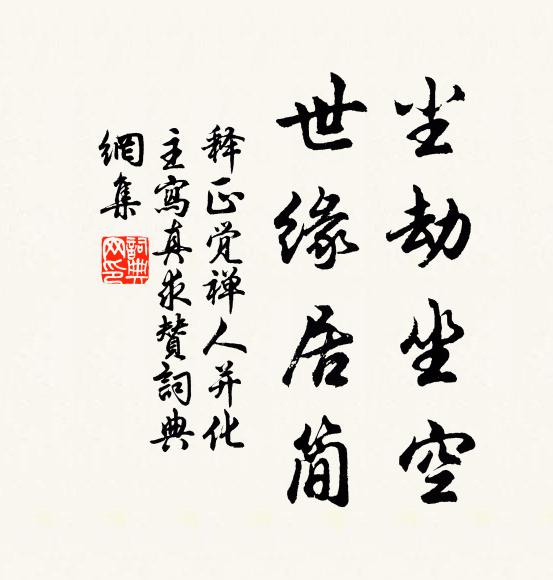 尘劫坐空
世缘居简
释正觉禅人并化
主写真求赞词典
網集
詞典網印